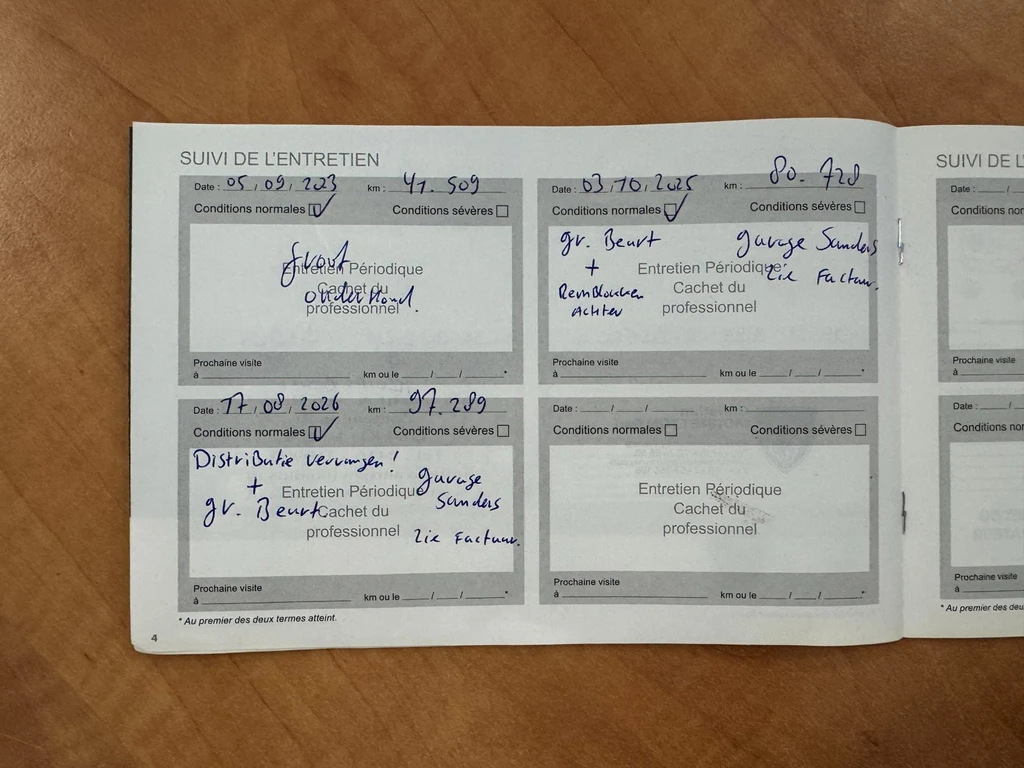 SUIVI DE L'ENTRETIEN
Date : 05, 09, 2023 km : 41. 509
Conditions normales Conditions sévères
groot
onderhoud.
Entretien Périodique
Cachet du
professionnel
Prochaine visite
à km ou le / / *
Date : 03, 10, 2025 km : 80. 728
Conditions normales Conditions sévères
gr. Beurt
+
Remblokken
Achter
garage Sanders
Zie Factuur.
Entretien Périodique
Cachet du
professionnel
Prochaine visite
à km ou le / / *
Date : 17, 08, 2026 km : 97. 289
Conditions normales Conditions sévères
Distributie vervangen!
+
gr. Beurt
garage
Sanders
Zie Factuur.
Entretien Périodique
Cachet du
professionnel
Prochaine visite
à km ou le / / *
Date : / / km :
Conditions normales Conditions sévères
Entretien Périodique
Cachet du
professionnel
Prochaine visite
à km ou le / / *
* Au premier des deux termes atteint.
4
SUIVI DE L
Date : /
Conditions nor
Prochaine visite
à
Date : /
Conditions nor
Prochaine visite
à
* Au premier des deu